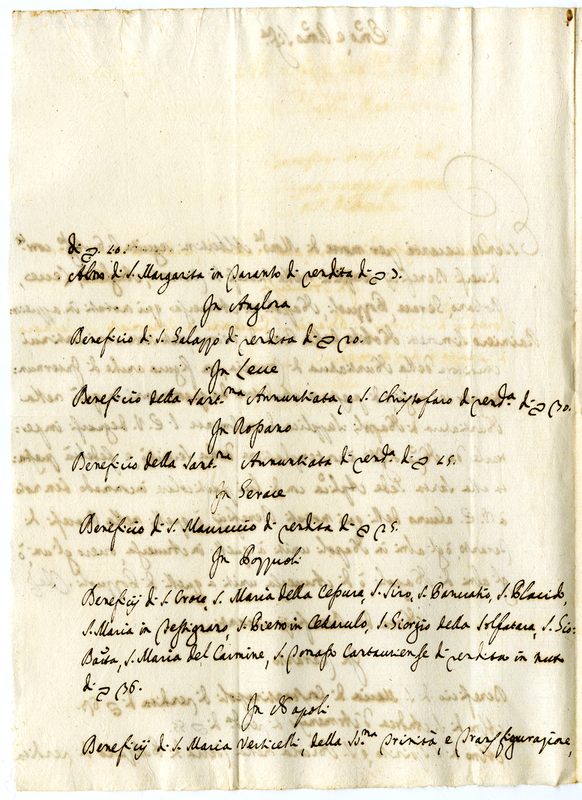 di ₯. 20.
Altro di S. Margarita in Taranto di rendita di ₯ 3.
In Anglona
Beneficio di S. Galappo di rendita di ₯ 20.
In Lecce
Beneficio della Sant.ma Annuntiata, e S. Christofaro di rend.a di ₯ 30.
In Rossano
Beneficio della Sant.ma Annuntiata di rend.a di ₯ 25.
In Gerace
Beneficio di S. Mauritio di rendita di ₯ 25.
In Pozzuoli
Beneficij di S. Croce, S. Maria della Cesura, S. Siro, S. Pancratio, S. Placido,
S. Maria in, S. Pietro in, S. Giorgio della Solfatara, S. Gio:
Batta, S. Maria del Carmine, S. Tomaso di rendita in tutto
di ₯ 36.
In Napoli
Beneficij di S. Maria Verticelli, della SS.ma Trinità, e Transfiguratione,